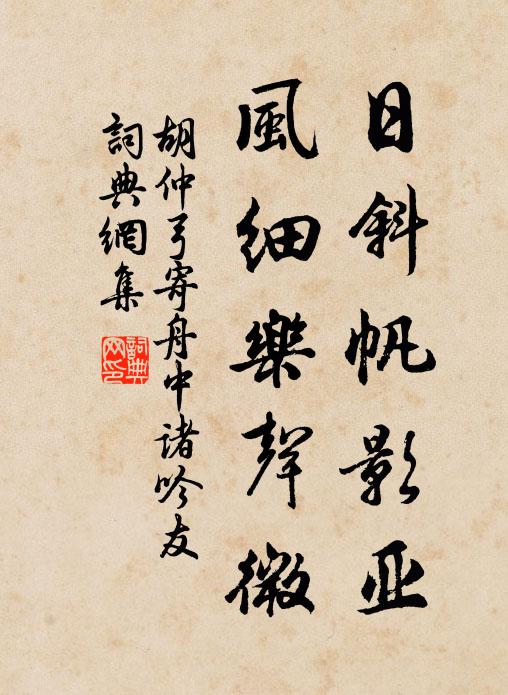 日斜帆影亚
風细樂聲微
胡仲弓寄舟中诸吟友
詞典網集
詞典网印